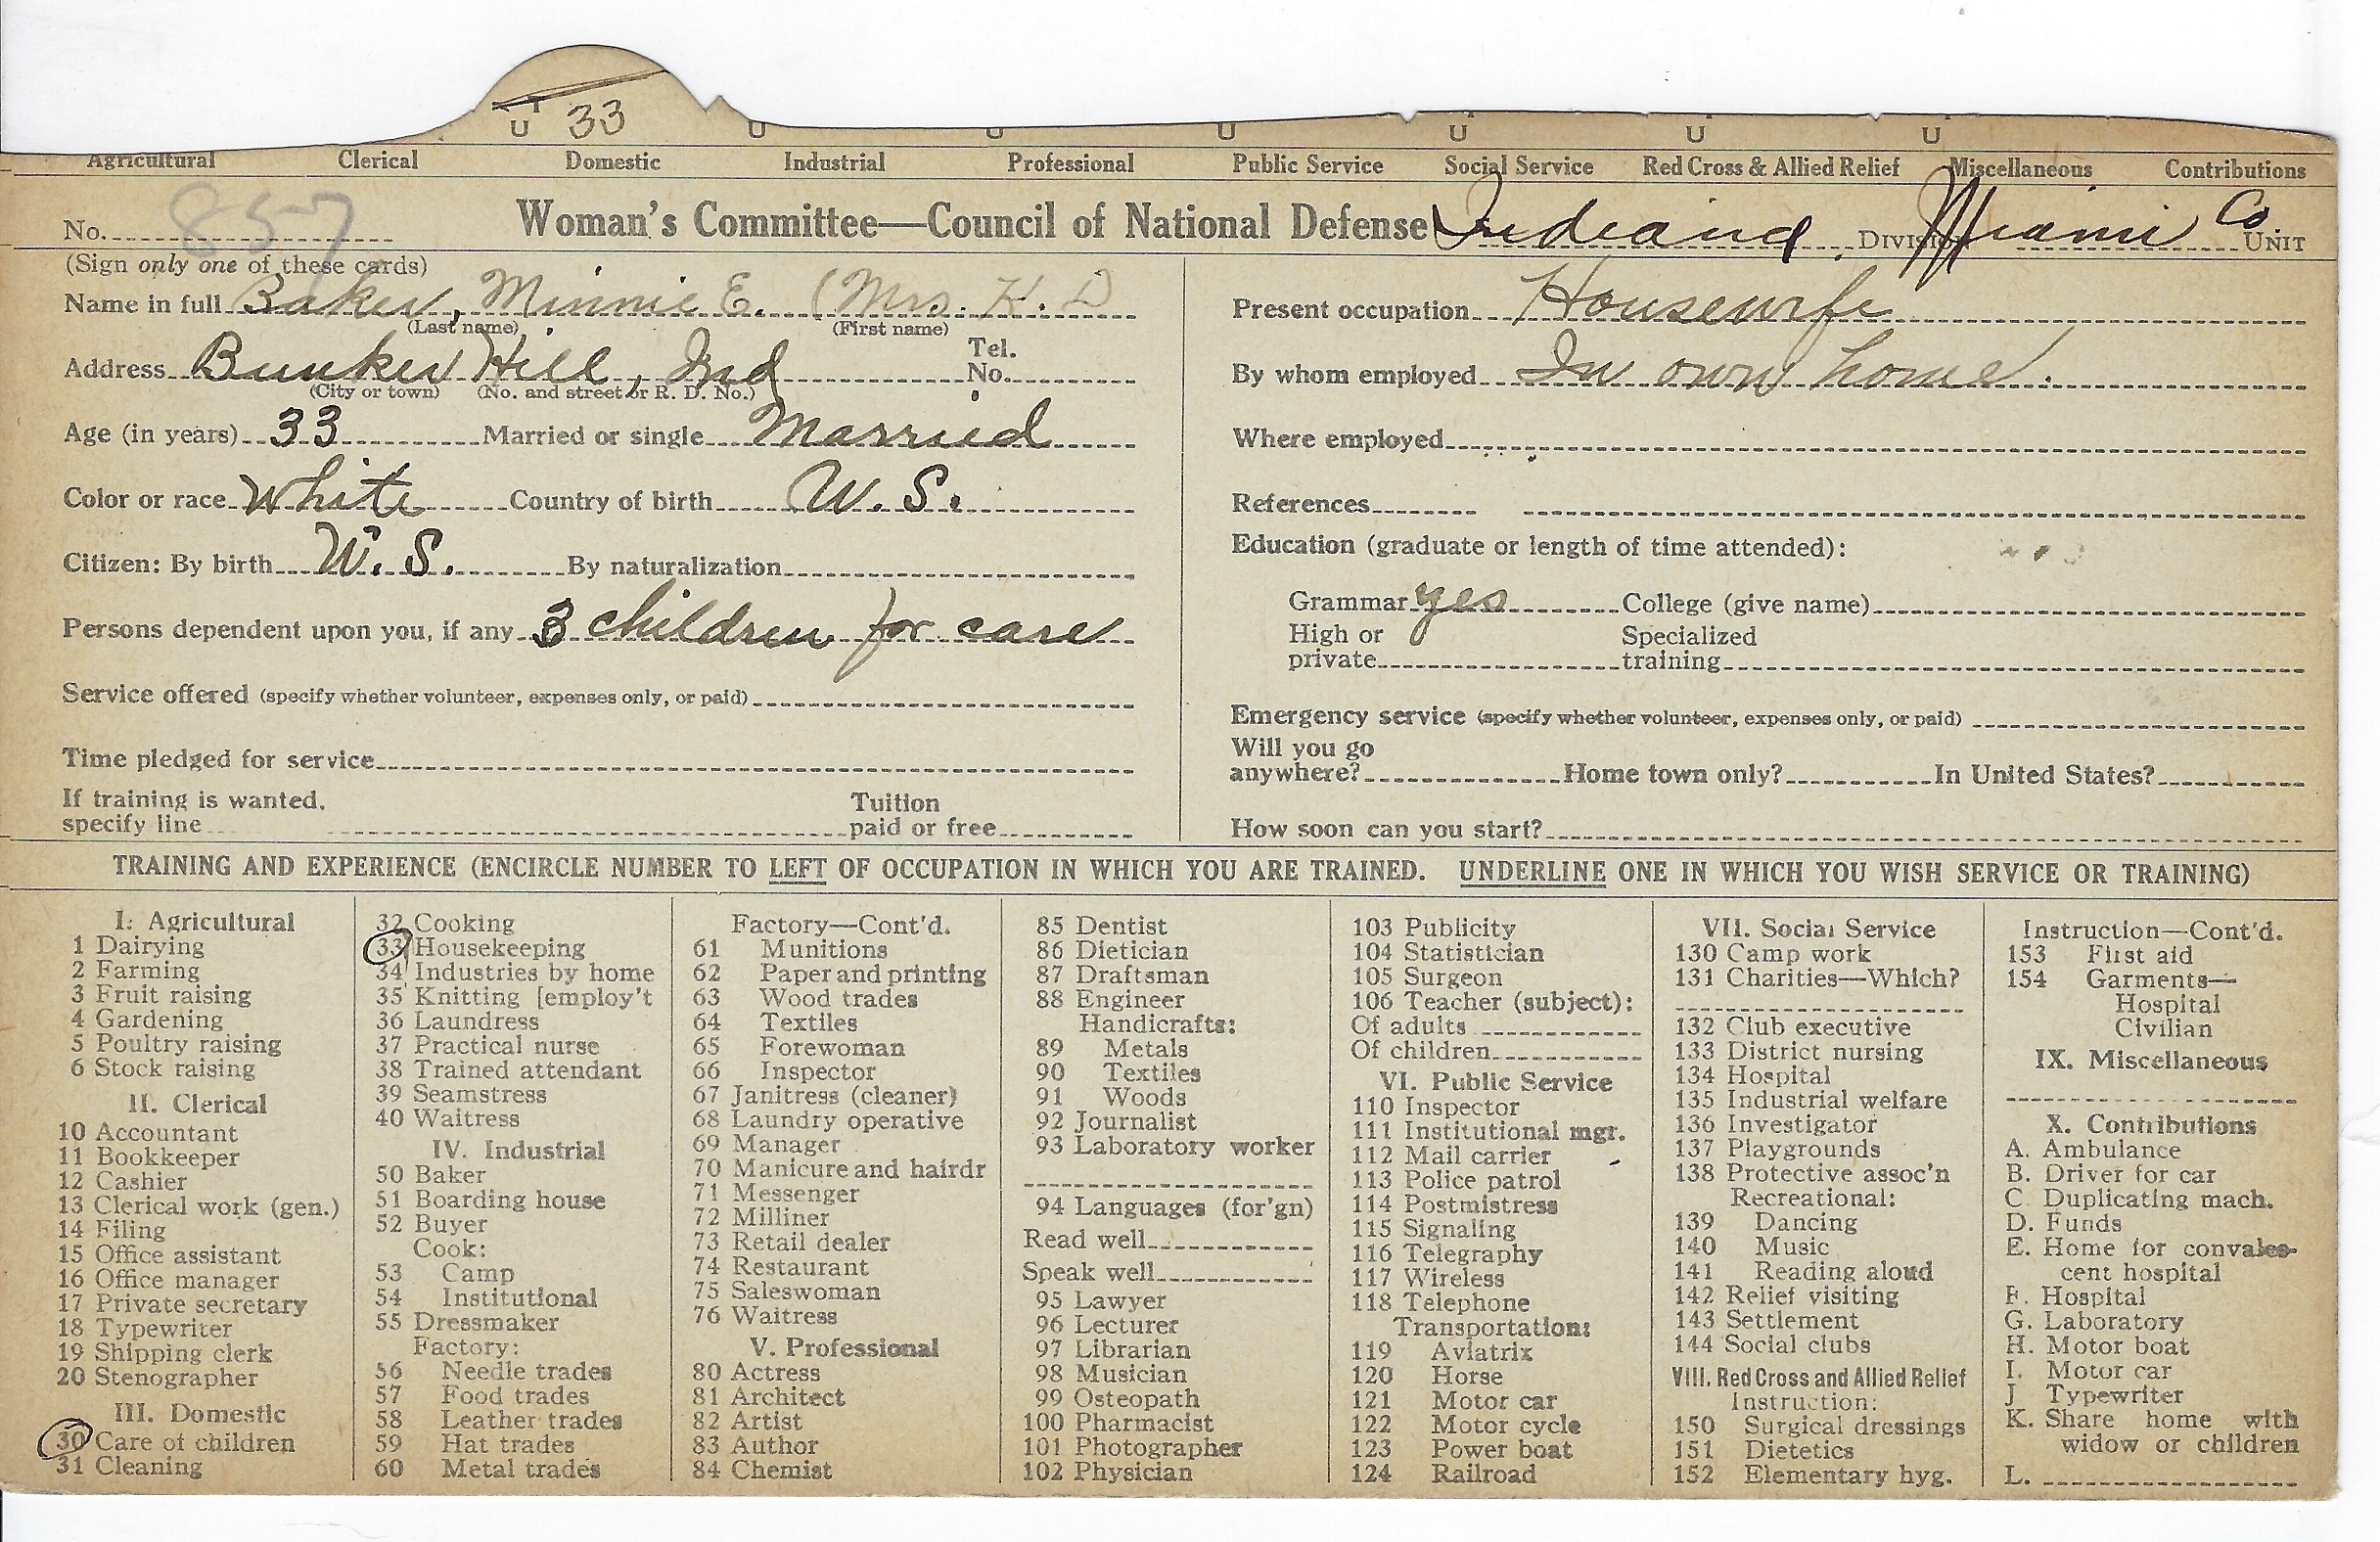 U T 33 U U U U U U
Agricultural Clerical Domestic Industrial Professional Public Service Social Service Red Cross & Allied Relief Miscellaneous Contributions
No. 857 Woman's Committee—Council of National Defense Indiana, DIVISION Miami Co. UNIT
(Sign only one of these cards)
Name in full Baker, Minnie E. (Mrs. K. D
(Last name) (First name)
Address Bunker Hill, Ind Tel. No.
(City or town) (No. and street or R. D. No.)
Age (in years) 33 Married or single Married
Color or race White Country of birth U. S.
Citizen: By birth U. S. By naturalization
Persons dependent upon you, if any 3 children for care
Service offered (specify whether volunteer, expenses only, or paid)
Time pledged for service
If training is wanted, specify line Tuition paid or free
Present occupation Housewife
By whom employed In own home.
Where employed
References
Education (graduate or length of time attended):
Grammar yes College (give name)
High or private Specialized training
Emergency service (specify whether volunteer, expenses only, or paid)
Will you go anywhere? Home town only? In United States?
How soon can you start?
TRAINING AND EXPERIENCE (ENCIRCLE NUMBER TO LEFT OF OCCUPATION IN WHICH YOU ARE TRAINED. UNDERLINE ONE IN WHICH YOU WISH SERVICE OR TRAINING)
I. Agricultural
1 Dairying
2 Farming
3 Fruit raising
4 Gardening
5 Poultry raising
6 Stock raising
II. Clerical
10 Accountant
11 Bookkeeper
12 Cashier
13 Clerical work (gen.)
14 Filing
15 Office assistant
16 Office manager
17 Private secretary
18 Typewriter
19 Shipping clerk
20 Stenographer
III. Domestic
30 Care of children
31 Cleaning
32 Cooking
33 Housekeeping
34 Industries by home
35 Knitting [employ't
36 Laundress
37 Practical nurse
38 Trained attendant
39 Seamstress
40 Waitress
IV. Industrial
50 Baker
51 Boarding house
52 Buyer
Cook:
53 Camp
54 Institutional
55 Dressmaker
Factory:
56 Needle trades
57 Food trades
58 Leather trades
59 Hat trades
60 Metal trades
Factory—Cont'd.
61 Munitions
62 Paper and printing
63 Wood trades
64 Textiles
65 Forewoman
66 Inspector
67 Janitress (cleaner)
68 Laundry operative
69 Manager
70 Manicure and hairdr
71 Messenger
72 Milliner
73 Retail dealer
74 Restaurant
75 Saleswoman
76 Waitress
V. Professional
80 Actress
81 Architect
82 Artist
83 Author
84 Chemist
85 Dentist
86 Dietician
87 Draftsman
88 Engineer
Handicrafts:
89 Metals
90 Textiles
91 Woods
92 Journalist
93 Laboratory worker
94 Languages (for'gn)
Read well
Speak well
95 Lawyer
96 Lecturer
97 Librarian
98 Musician
99 Osteopath
100 Pharmacist
101 Photographer
102 Physician
103 Publicity
104 Statistician
105 Surgeon
106 Teacher (subject):
Of adults
Of children
VI. Public Service
110 Inspector
111 Institutional mgr.
112 Mail carrier
113 Police patrol
114 Postmistress
115 Signaling
116 Telegraphy
117 Wireless
118 Telephone
Transportation:
119 Aviatrix
120 Horse
121 Motor car
122 Motor cycle
123 Power boat
124 Railroad
VII. Social Service
130 Camp work
131 Charities—Which?
132 Club executive
133 District nursing
134 Hospital
135 Industrial welfare
136 Investigator
137 Playgrounds
138 Protective assoc'n
Recreational:
139 Dancing
140 Music
141 Reading aloud
142 Relief visiting
143 Settlement
144 Social clubs
VIII. Red Cross and Allied Relief
Instruction:
150 Surgical dressings
151 Dietetics
152 Elementary hyg.
Instruction—Cont'd.
153 First aid
154 Garments—
Hospital
Civilian
IX. Miscellaneous
X. Contributions
A. Ambulance
B. Driver for car
C. Duplicating mach.
D. Funds
E. Home for convales-
cent hospital
F. Hospital
G. Laboratory
H. Motor boat
I. Motor car
J. Typewriter
K. Share home with
widow or children
L.